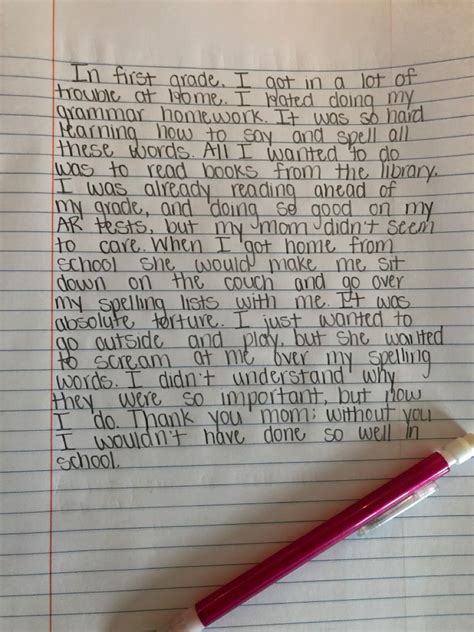 In first grade, I got in a lot of
trouble at Home. I Hated doing my
grammar homework. It was so hard
learning how to say and spell all
these words. All I wanted to do
was to read books from the library.
I was already reading ahead of
my grade, and doing so good on my
AR tests, but my mom didn't seem
to care. When I got home from
school she would make me sit
down on the couch and go over
my spelling lists with me. It was
absolute torture. I just wanted to
go outside and play, but she wanted
to scream at me over my spelling
words. I didn't understand why
they were so important, but now
I do. Thank you mom; without you
I wouldn't have done so well in
school.